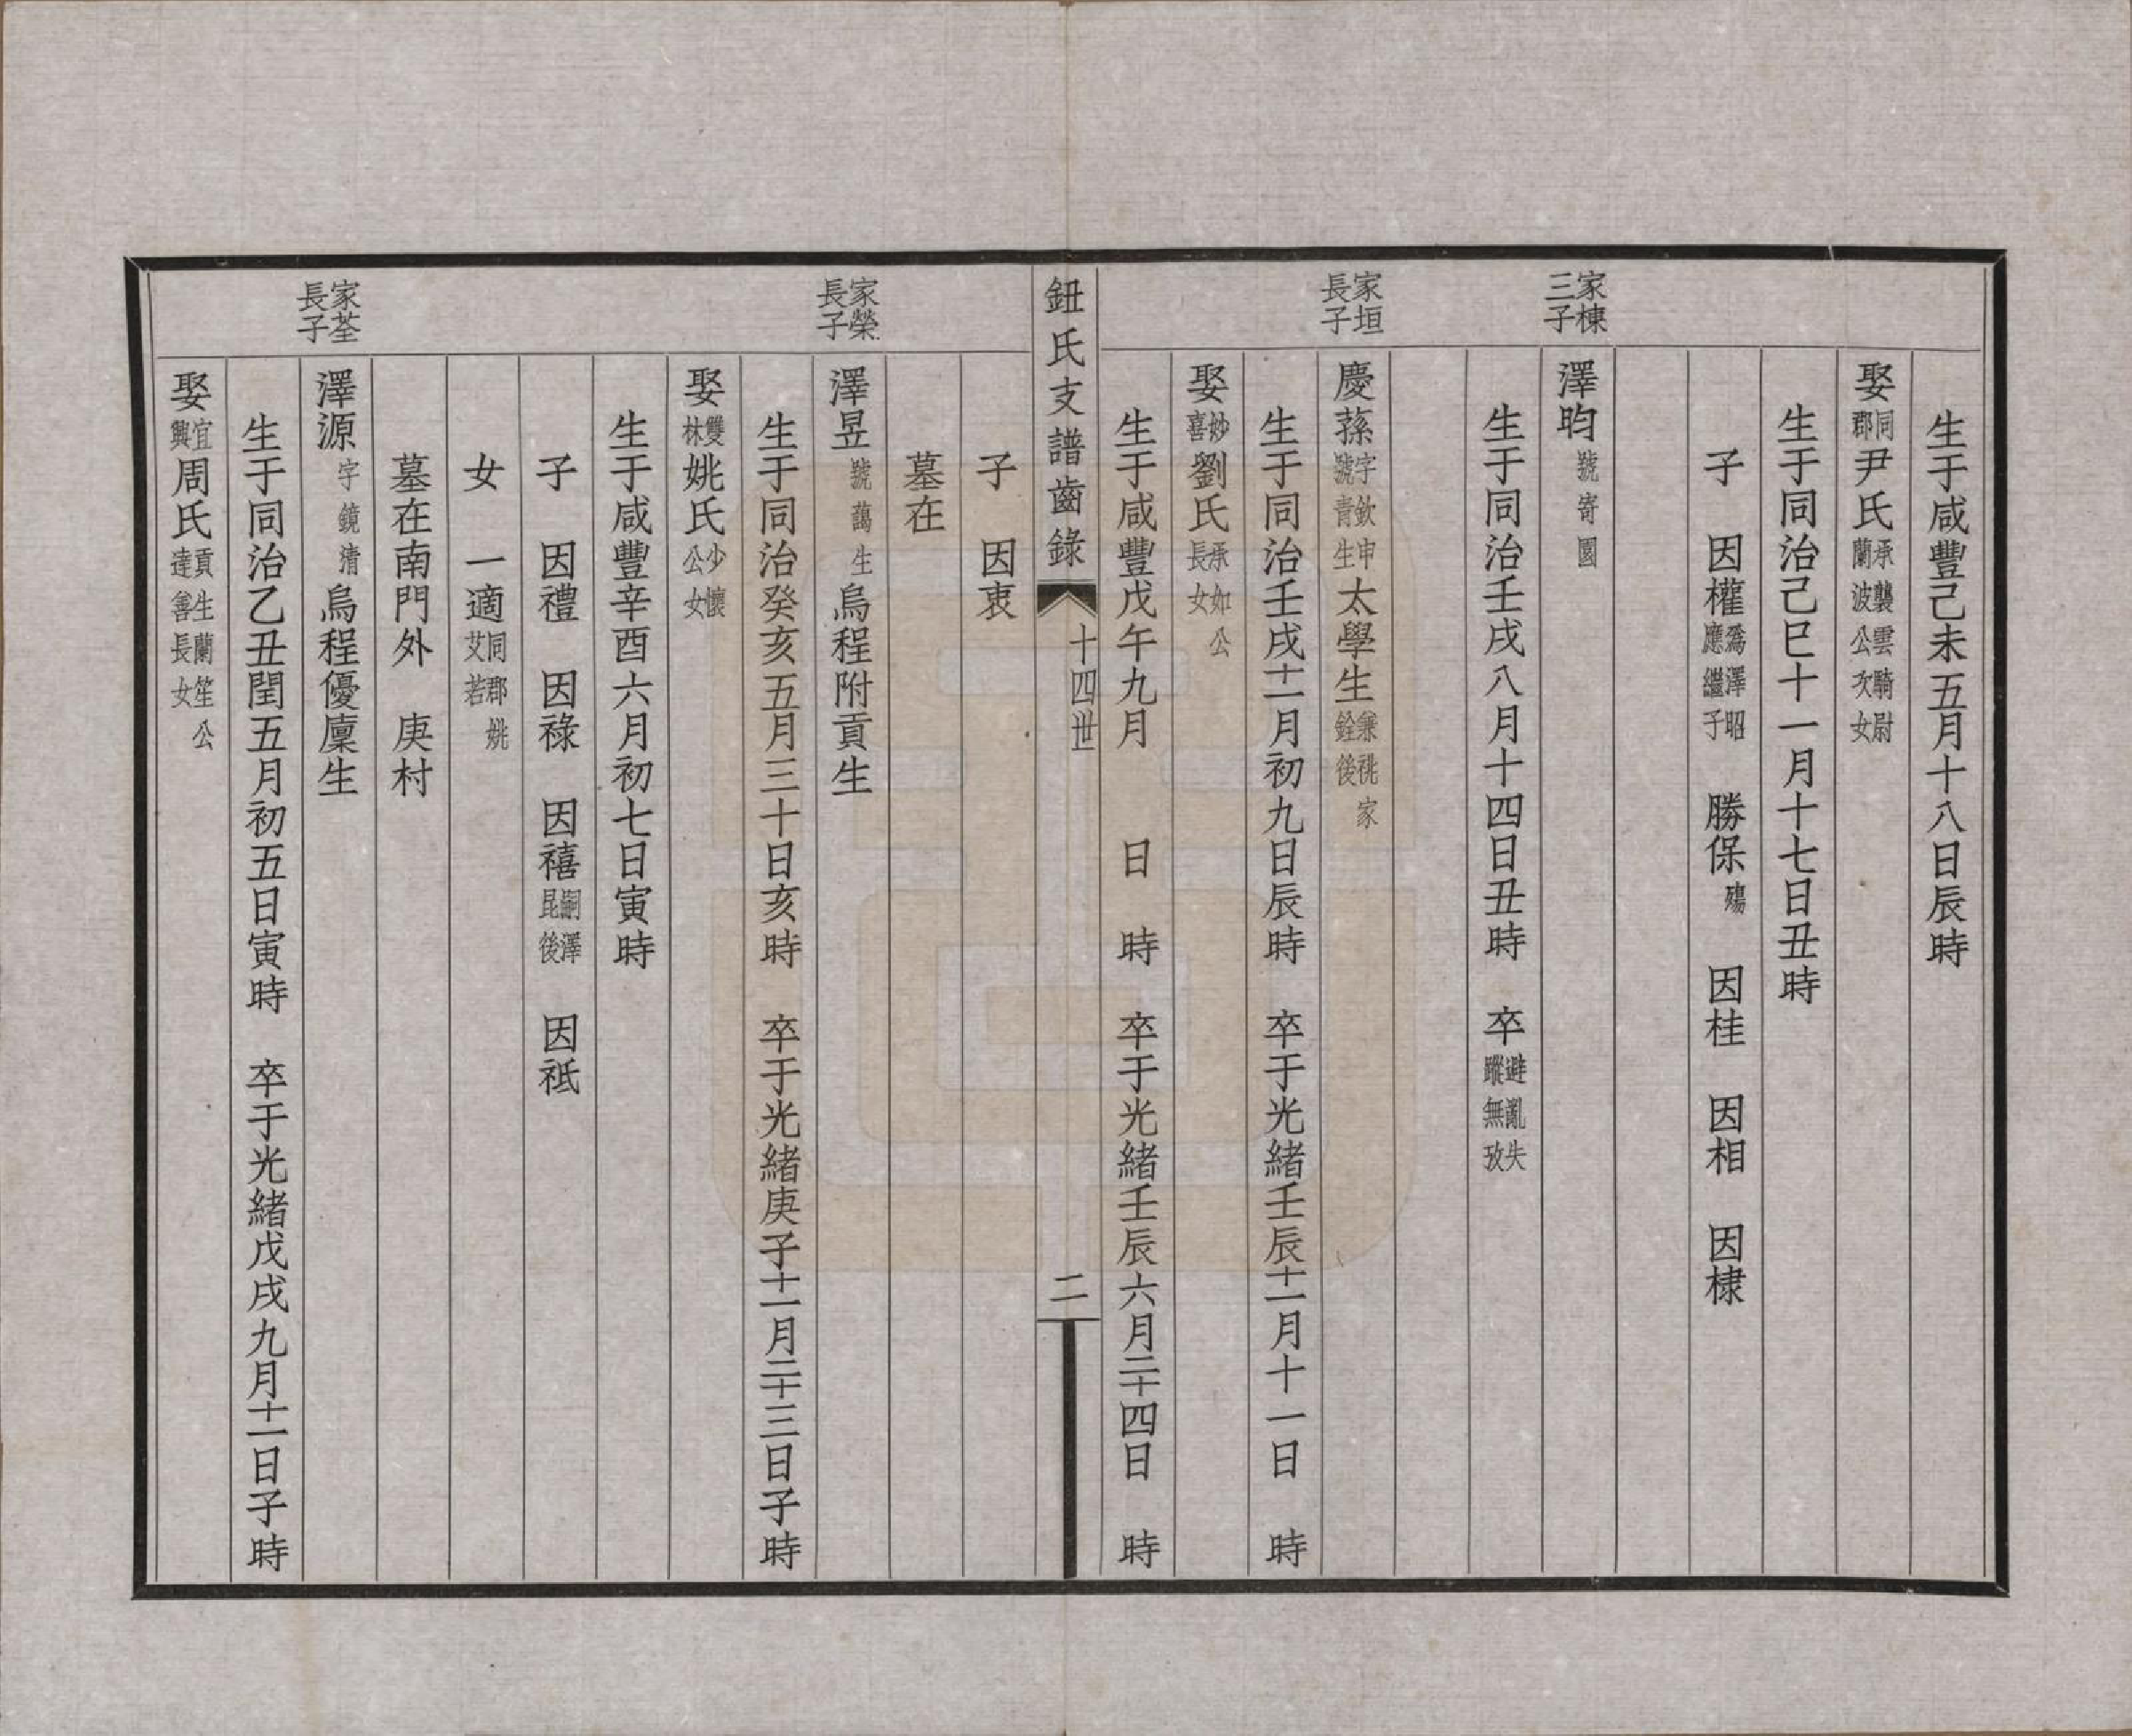 生于咸豐己未五月十八日辰時
娶同郡尹氏承襲雲騎尉蘭波公次女
生于同治己巳十一月十七日丑時
子　因權爲澤昭應繼子　勝保殤　因桂　因相　因棣
家棟三子
澤昀號寄園
生于同治壬戌八月十四日丑時　卒避亂失蹤無攷
家垣長子
慶蓀字欽申號青生太學生兼祧家銓後
生于同治壬戌十一月初九日辰時　卒于光緒壬辰十一月十一日　時
娶妙喜劉氏承如公長女
生于咸豐戊午九月　日　時　卒于光緒壬辰六月二十四日　時
鈕氏支譜齒錄　十四世　二
子　因衷
墓在
家榮長子
澤昱號藹生烏程附貢生
生于同治癸亥五月三十日亥時　卒于光緒庚子十一月二十三日子時
娶雙林姚氏少懷公女
生于咸豐辛酉六月初七日寅時
子　因禮　因祿　因禧嗣澤昆後　因祇
女　一適同郡姚艾若
墓在南門外　庚村
家荃長子
澤源字鏡清烏程優廩生
生于同治乙丑閏五月初五日寅時　卒于光緒戊戌九月十一日子時
娶宜興周氏貢生蘭笙公達善長女